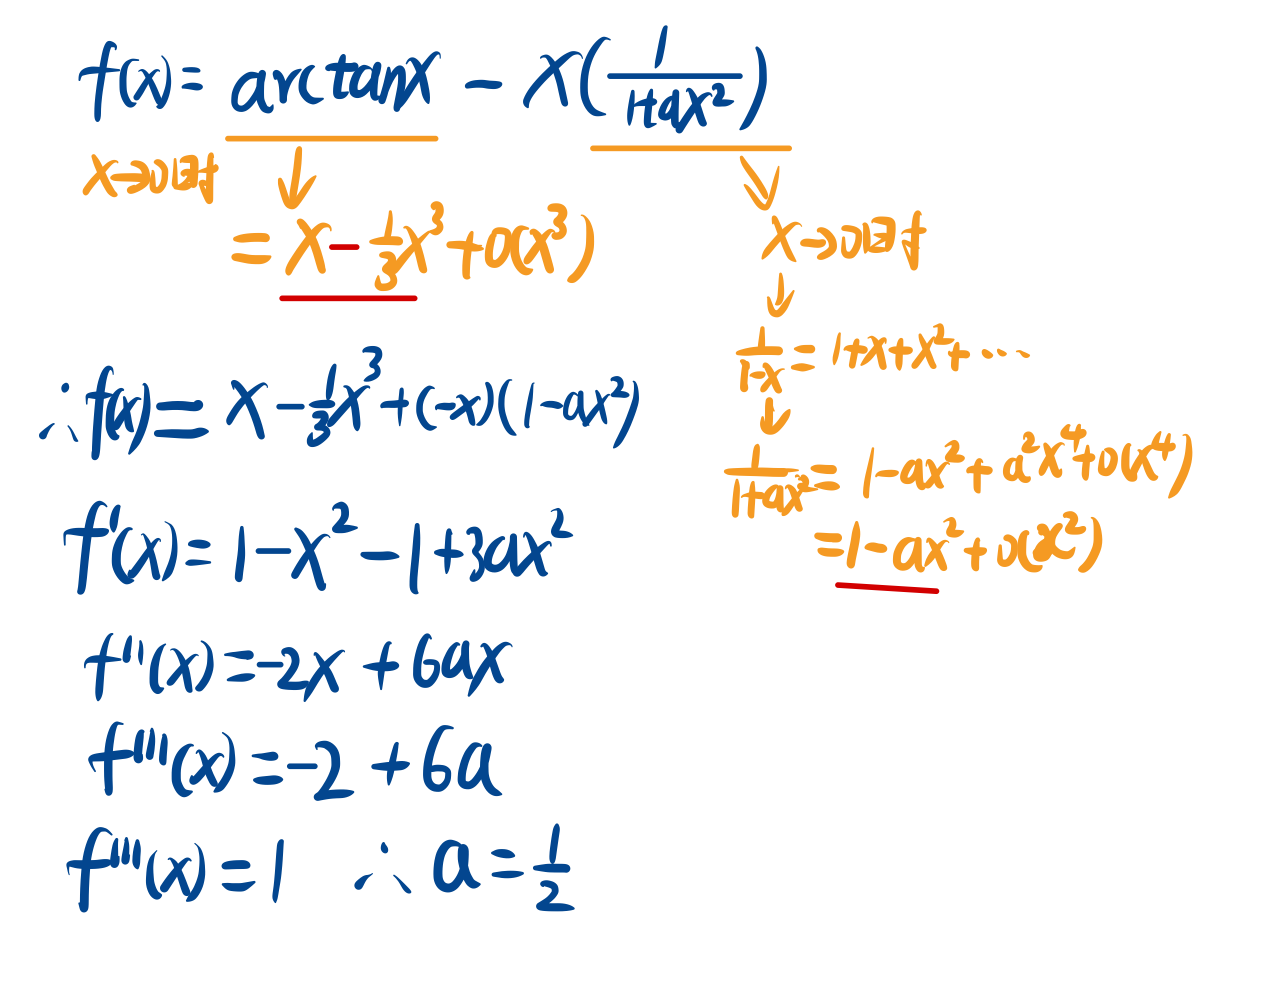 f(x) = arctanx - x(1/(1+ax²))
x→0时
= x - 1/3x³ + o(x³)
x→0时
1/(1-x) = 1+x+x²+···
1/(1+ax²) = 1-ax²+a²x⁴+o(x⁴)
= 1-ax²+o(x²)
∴f(x) = x - 1/3x³ + (-x)(1-ax²)
f'(x) = 1-x²-1+3ax²
f''(x) = -2x + 6ax
f'''(x) = -2 + 6a
f'''(x) = 1 ∴ a = 1/2